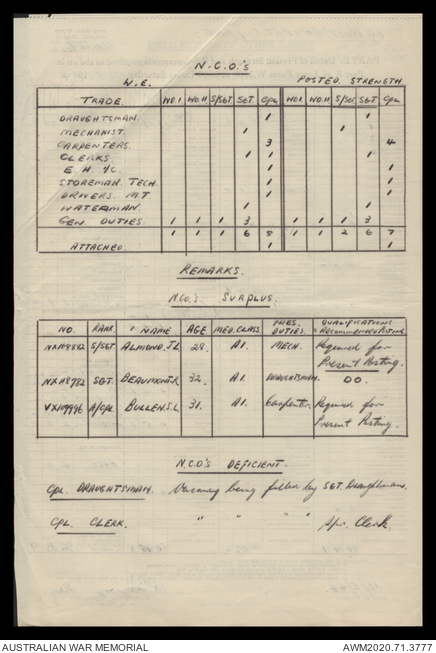 N.C.O's
W.E. POSTED STRENGTH
TRADE WO.I WO.II S/SGT SGT CPL WO.I WO.II S/SGT SGT CPL
DRAUGHTSMAN. 1 1
MECHANIST. 1 1
CARPENTERS. 3 4
CLERKS 1 1 1
E. H. I/C. 1 1
STOREMAN TECH. 1 1
DRIVERS M.T 1 1
WATERMAN. 1 1
GEN. DUTIES 1 1 1 3 1 1 1 3
1 1 1 6 8 1 1 2 6 7
ATTACHED 1 1
REMARKS.
NCO's SURPLUS.
NO. RANK. NAME AGE MED.CLASS. PRES. DUTIES. QUALIFICATIONS & RECOMMENDED POSTING
S/SGT ALMOND.J.L 29. A1. MECH. Required for
Present Posting.
NX118782 SGT. 32. A1. DRAUGHTSMAN. DO.
A/CPL BULLEN.S.L 31. A1. Carpenter. Required for
Present Posting.
N.C.O's DEFICIENT.
CPL DRAUGHTSMAN. Vacancy being filled by SGT. Draughtsman.
CPL. CLERK. " " " " Spr. Clerk.
AUSTRALIAN WAR MEMORIAL AWM2020.71.3777